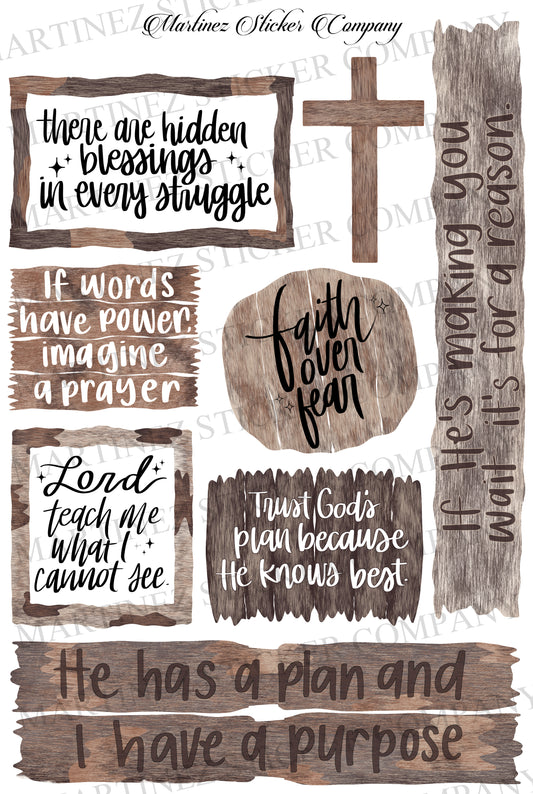 Martinez Sticker Company
there are hidden
blessings
in every struggle
If words
have power,
imagine
a prayer
faith
over
fear
If He's making you
wait it's for a reason.
Lord
teach me
what I
cannot see.
Trust God's
plan because
He knows best.
He has a plan and
I have a purpose
MARTINEZ STICKER COMPANY
MARTINEZ STICKER COMPANY
MARTINEZ STICKER COMPANY
MARTINEZ STICKER COMPANY
MARTINEZ STICKER COMPANY